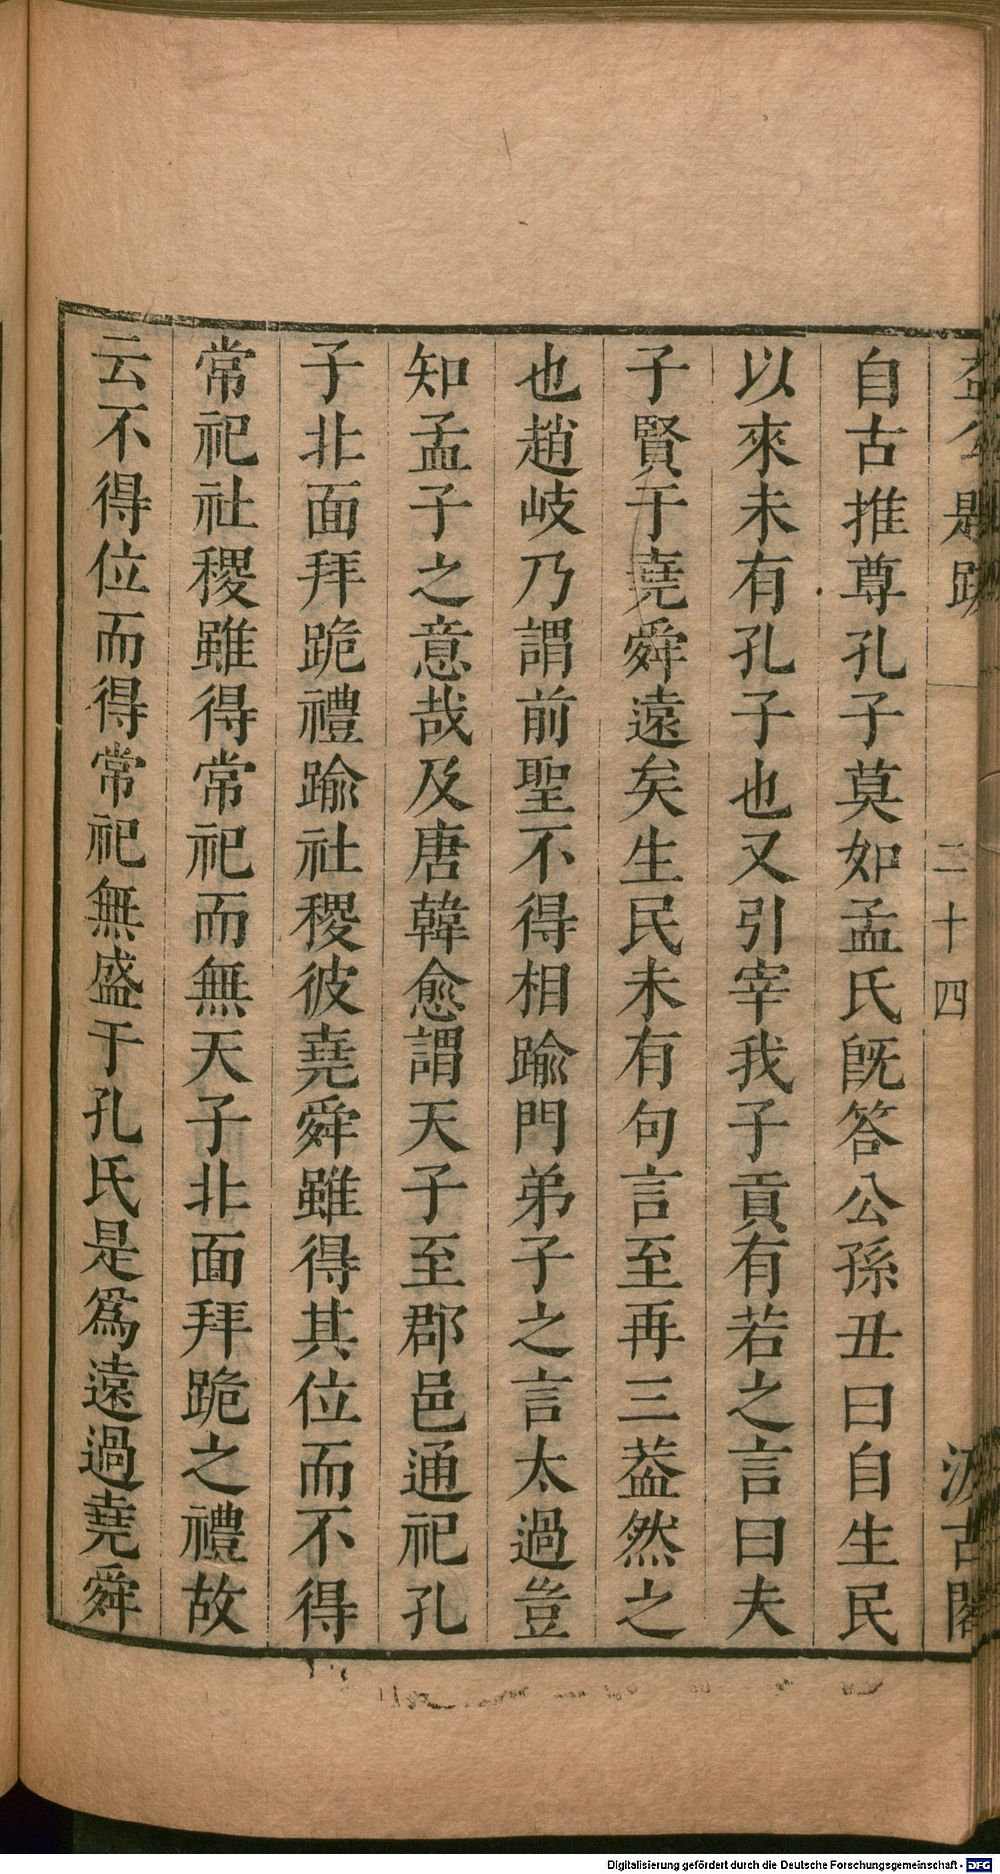 益公題跋 二十四 汲古閣
自古推尊孔子莫如孟氏旣答公孫丑曰自生民
以來未有孔子也又引宰我子貢有若之言曰夫
子賢于堯舜遠矣生民未有句言至再三葢然之
也趙岐乃謂前聖不得相踰門弟子之言太過豈
知孟子之意哉及唐韓愈謂天子至郡邑通祀孔
子北面拜跪禮踰社稷彼堯舜雖得其位而不得
常祀社稷雖得常祀而無天子北面拜跪之禮故
云不得位而得常祀無盛于孔氏是爲遠過堯舜
Digitalisierung gefördert durch die Deutsche Forschungsgemeinschaft - DFG